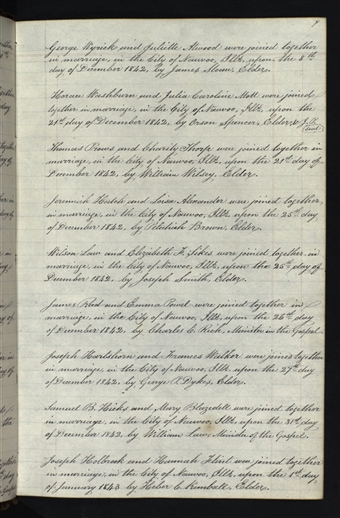 9
George Wyrick and Juliette Atwood were joined together
in marriage, in the City of Nauvoo, Ills. upon the 8th
day of December 1842, by James Sloan, Elder.
Horace Washburn and Julia Caroline Mott were joined
together in marriage, in the City of Nauvoo, Ills. upon the
21st day of December 1842, by Orson Spencer, Elder &
Thomas and Charity Thorpe were joined together in
marriage, in the City of Nauvoo, Ills. upon the 21st day of
December 1842, by William Wilsey, Elder.
Jeremiah Hatch and Alexander were joined together
in marriage, in the City of Nauvoo, Ills. upon the 25th day
of December 1842, by Pelatiah Brown, Elder.
Wilson Law and Elizabeth F. Sikes were joined together in
marriage, in the City of Nauvoo, Ills. upon the 25th day of
December 1842, by Joseph Smith, Elder.
James and Emma were joined together in
marriage, in the City of Nauvoo, Ills. upon the 26th day
of December 1842, by Charles C. Rich, Minister in the Gospel.
Joseph Hartshorn and Frances Walker were joined together
in marriage, in the City of Nauvoo, Ills. upon the 27th day
of December 1842, by George P. Dykes, Elder.
Samuel B. Hicks and Mary Blazedell were joined together
in marriage, in the City of Nauvoo, Ills. upon the 31st day
of December 1842, by William Law, Minister of the Gospel.
Joseph Holbrook and Hannah Flint were joined together
in marriage, in the City of Nauvoo, Ills. upon the 1st day
of January 1843 by Heber C. Kimball, Elder.